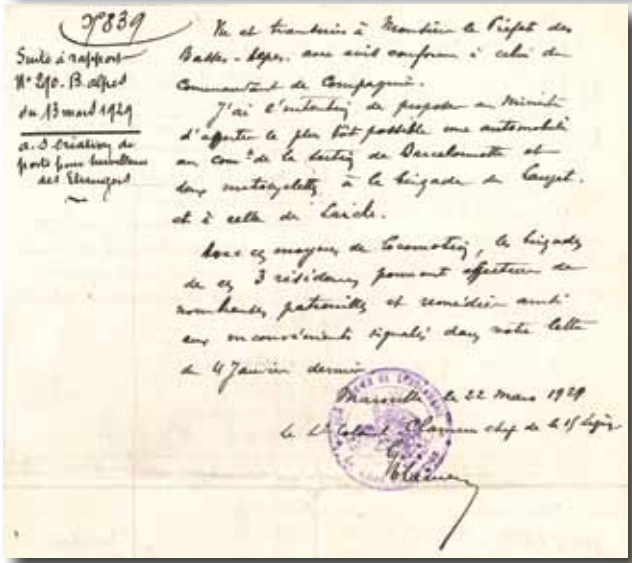 N° 839
Suite à rapport
N° 290. B. alpes
du 13 mars 1929
a. s. création de
poste pour surveillance
des Etrangers
Vu et transmis à Monsieur le Préfet des
Basses-Alpes avec avis conforme à celui du
Commandant de Compagnie.
J'ai l'intention de proposer au Ministre
d'affecter le plus tôt possible une automobile
au com.t de la section de Barcelonnette et
deux motocyclettes à la brigade du Lauzet
et à celle de Larche.
Avec ces moyens de locomotion, les brigades
de ces 3 résidences pourront effectuer de
nombreuses patrouilles et remédier ainsi
aux inconvénients signalés dans votre lettre
du 4 Janvier dernier
Marseille le 22 mars 1929
Le Lt Colonel chef de la 15 Légion